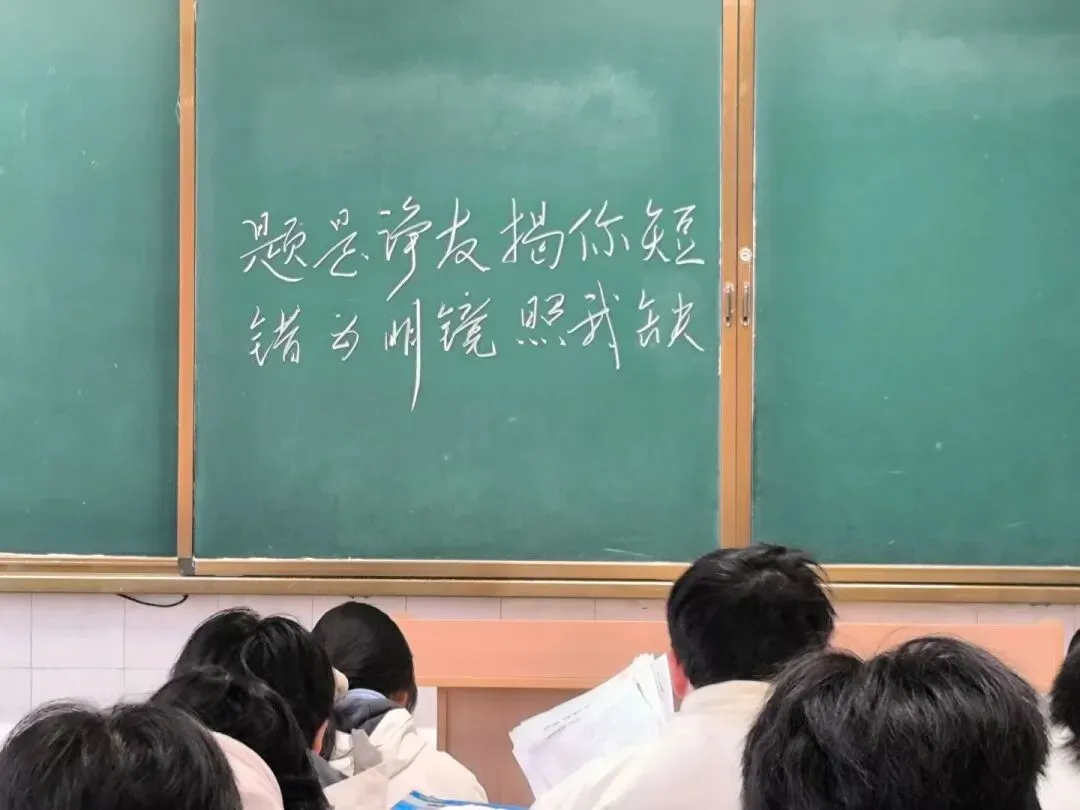 题是诤友揭你短
错为明镜照我缺